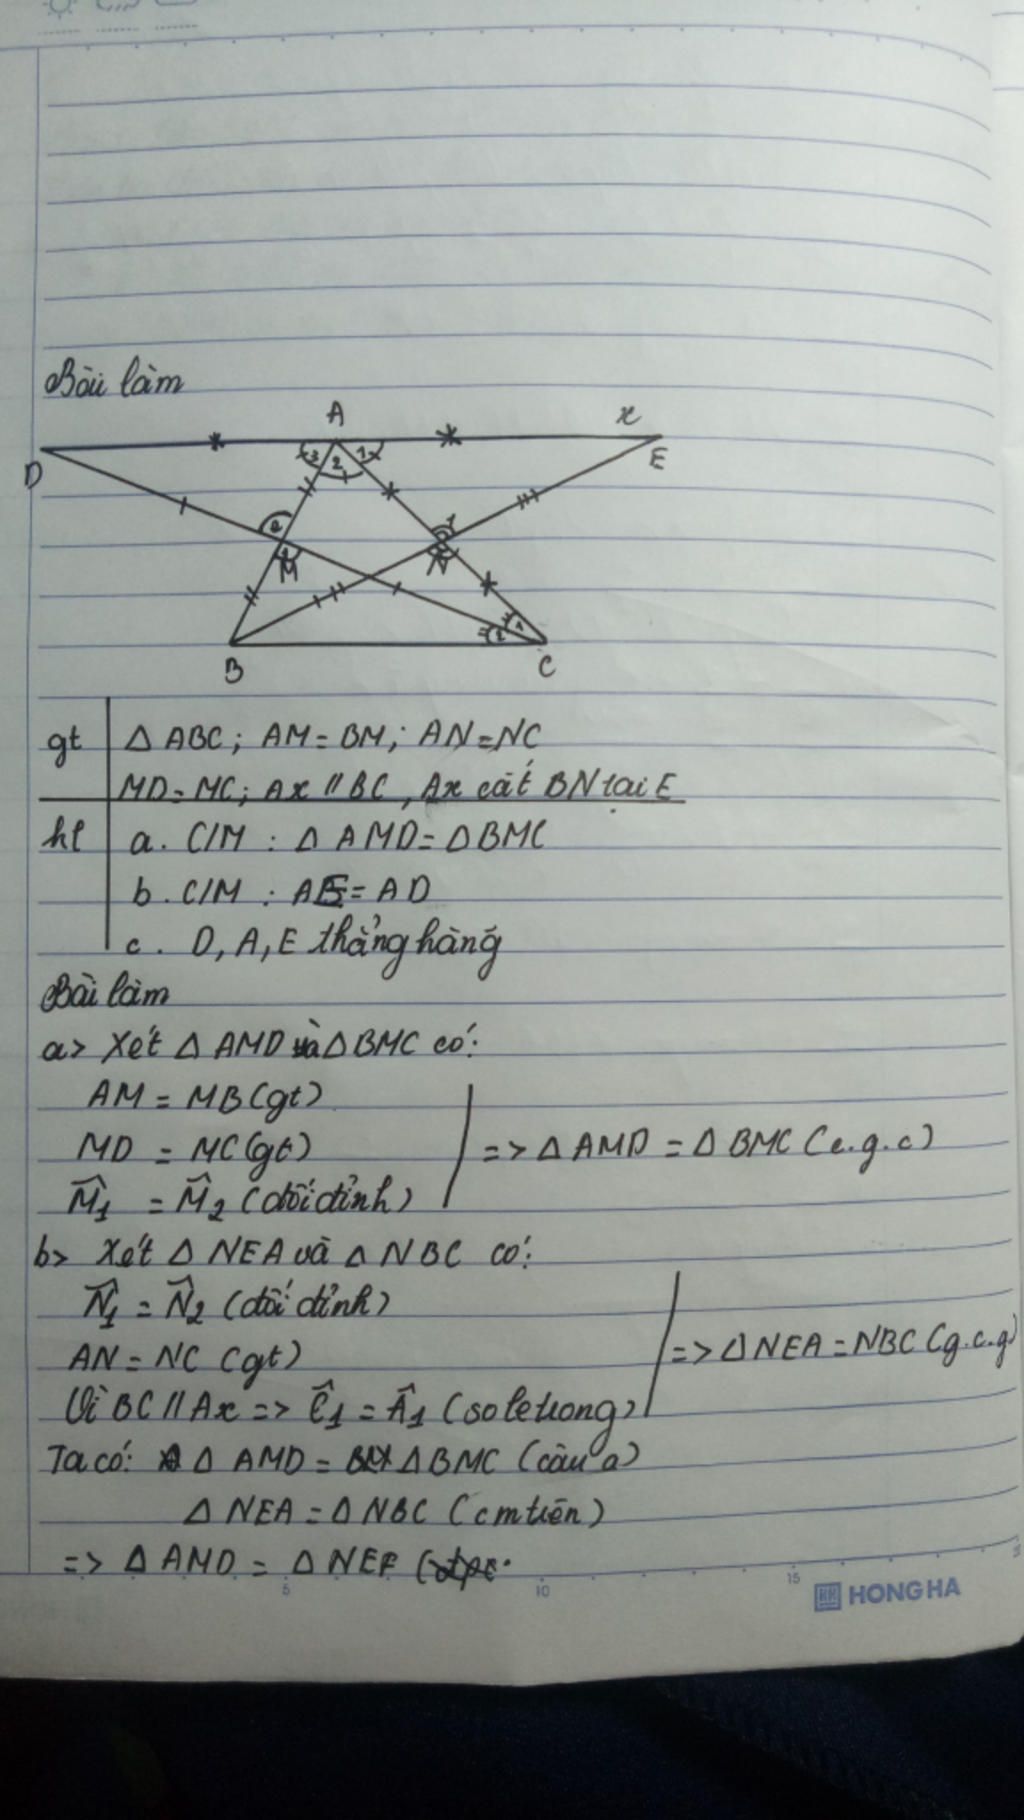 Bài làm
A
x
D
E
3 2 1
2 1
M N
2 1
B
C
gt ΔABC; AM = BM; AN = NC
MD = MC; Ax // BC, Ax cắt BN tại E
kl a. C/M : Δ AMD = Δ BMC
b. C/M : AE = AD
c. D, A, E thẳng hàng
Bài làm
a> Xét Δ AMD và Δ BMC có:
AM = MB (gt)
MD = MC (gt) => Δ AMD = Δ BMC (c.g.c)
M̂1 = M̂2 (đối đỉnh)
b> Xét Δ NEA và Δ NBC có:
N̂1 = N̂2 (đối đỉnh)
AN = NC (gt) => Δ NEA = NBC (g.c.g)
Vì BC // Ax => Ĉ1 = Â1 (so le trong)
Ta có: Δ AMD = Δ BMC (câu a)
Δ NEA = Δ NBC (cm trên)
=> Δ AMD = Δ NEF (
5 10 15
HONG HA